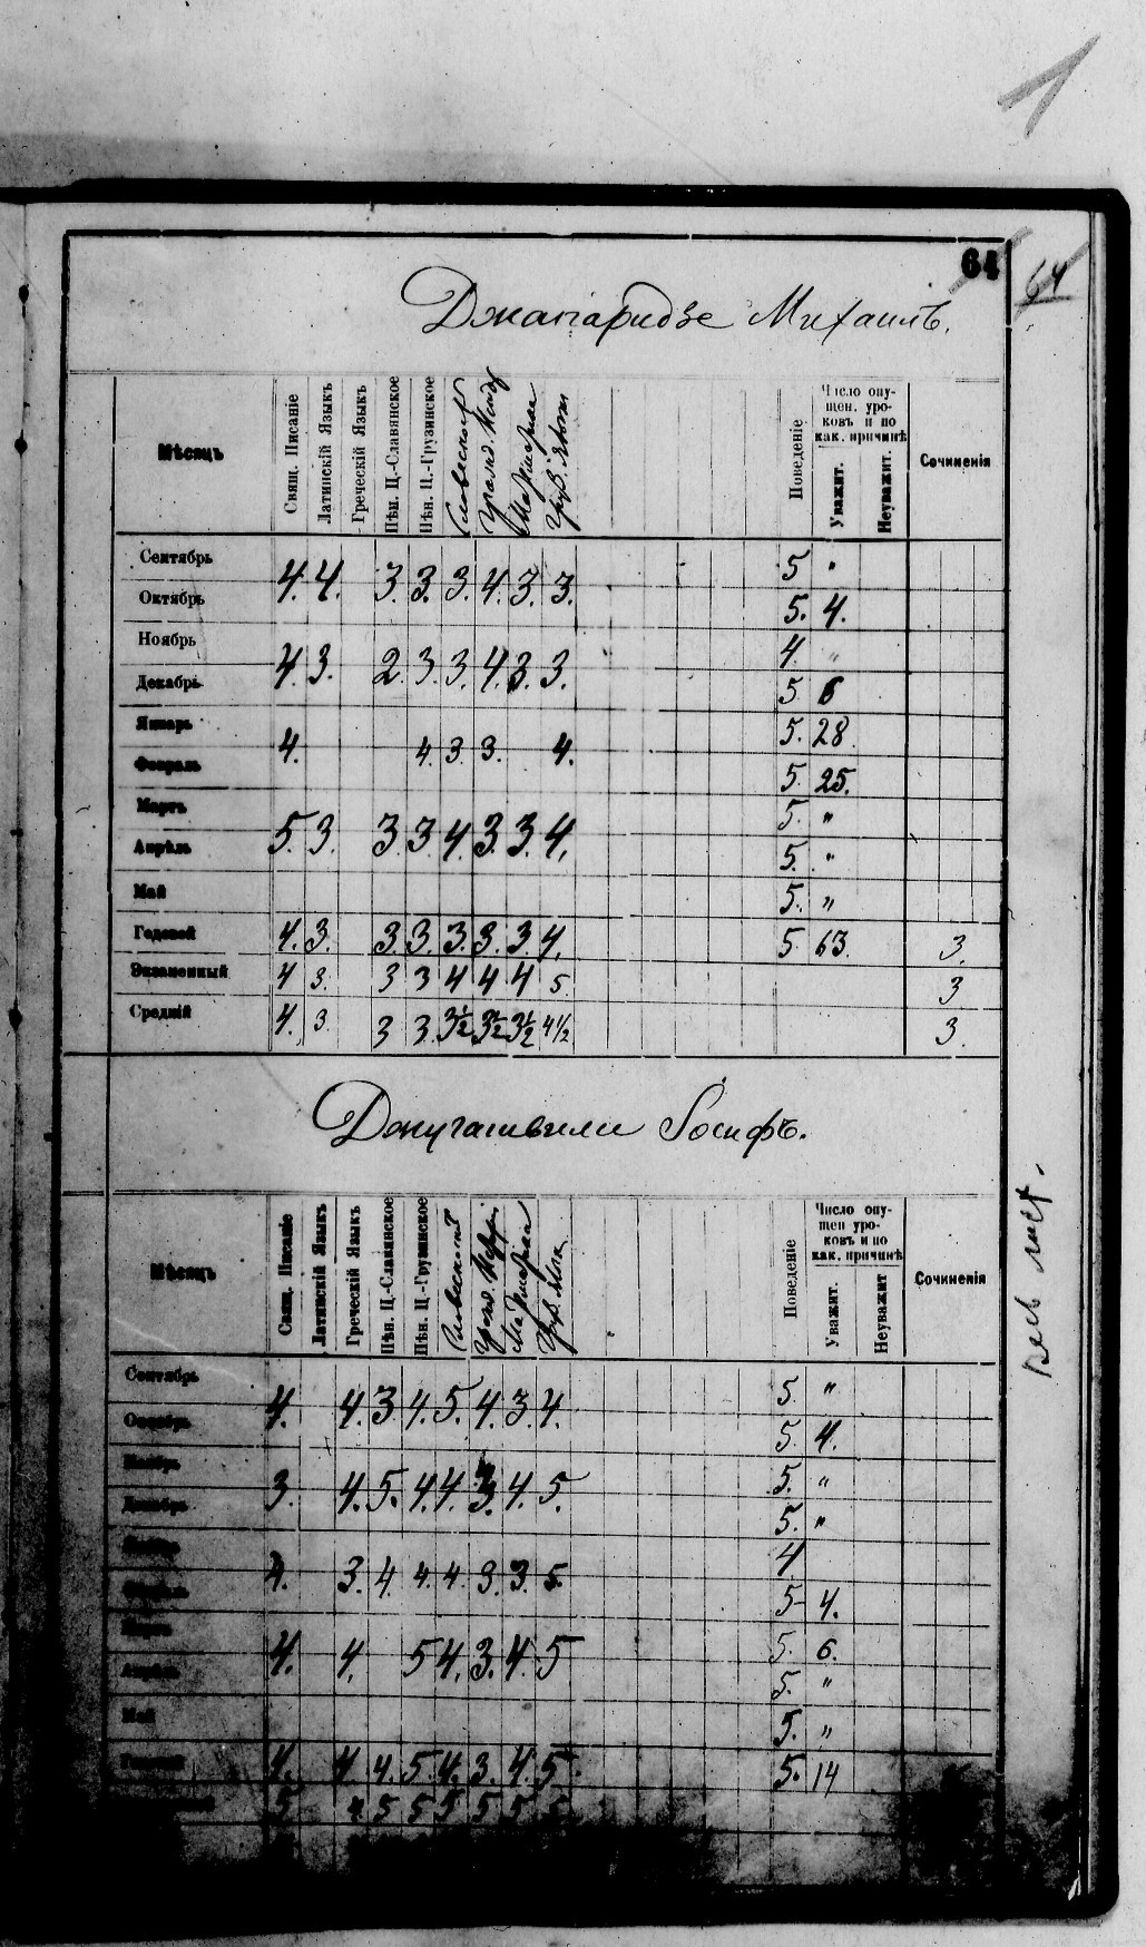 1
64
64
Джапаридзе Михаилъ.
Мѣсяцъ
Свящ. Писаніе
Латинскій Языкъ
Греческій Языкъ
Пѣн. Ц.-Славянское
Пѣн. Ц.-Грузинское
Словесность
Гражд.
Математика
Груз. языкъ
Поведеніе
Число опу-
щен. уро-
ковъ и по
как. причинѣ
Уважит.
Неуважит.
Сочиненія
Сентябрь 5 "
4. 4. 3. 3. 3. 4. 3. 3.
Октябрь 5. 4.
Ноябрь 4. "
4. 3. 2. 3. 3. 4. 3. 3.
Декабрь 5 6
Январь 5. 28
4. 4. 3. 3. 4.
Февраль 5. 25.
Мартъ 5. "
5. 3. 3. 3. 4. 3. 3. 4.
Апрѣль 5. "
Май 5. "
Годовой 4. 3. 3. 3. 3. 3. 3. 4. 5 63. 3.
Экзаменный 4 3. 3 3 4 4 4 5. 3
Средній 4. 3. 3 3. 3½ 3½ 3½ 4½ 3.
Джугашвили Іосифъ.
Мѣсяцъ
Свящ. Писаніе
Латинскій Языкъ
Греческій Языкъ
Пѣн. Ц.-Славянское
Пѣн. Ц.-Грузинское
Словесность
Гражд.
Математика
Груз. языкъ
Поведеніе
Число опу-
щен уро-
ковъ и по
как. причинѣ
Уважит.
Неуважит
Сочиненія
Сентябрь 5. "
4. 4. 3. 4. 5. 4. 3. 4.
Октябрь 5. 4.
Ноябрь 5. "
3. 4. 5. 4. 4. 3. 4. 5.
Декабрь 5. "
4
4. 3. 4. 4. 4. 3. 3. 5.
Февраль 5 4.
Мартъ 5. 6.
4. 4. 5 4. 3. 4. 5
Апрѣль 5. "
Май 5. "
Годовой 4. 4. 4. 5. 4. 3. 4. 5. 5. 14
5 4. 5 5 5 5 5
весь лист.